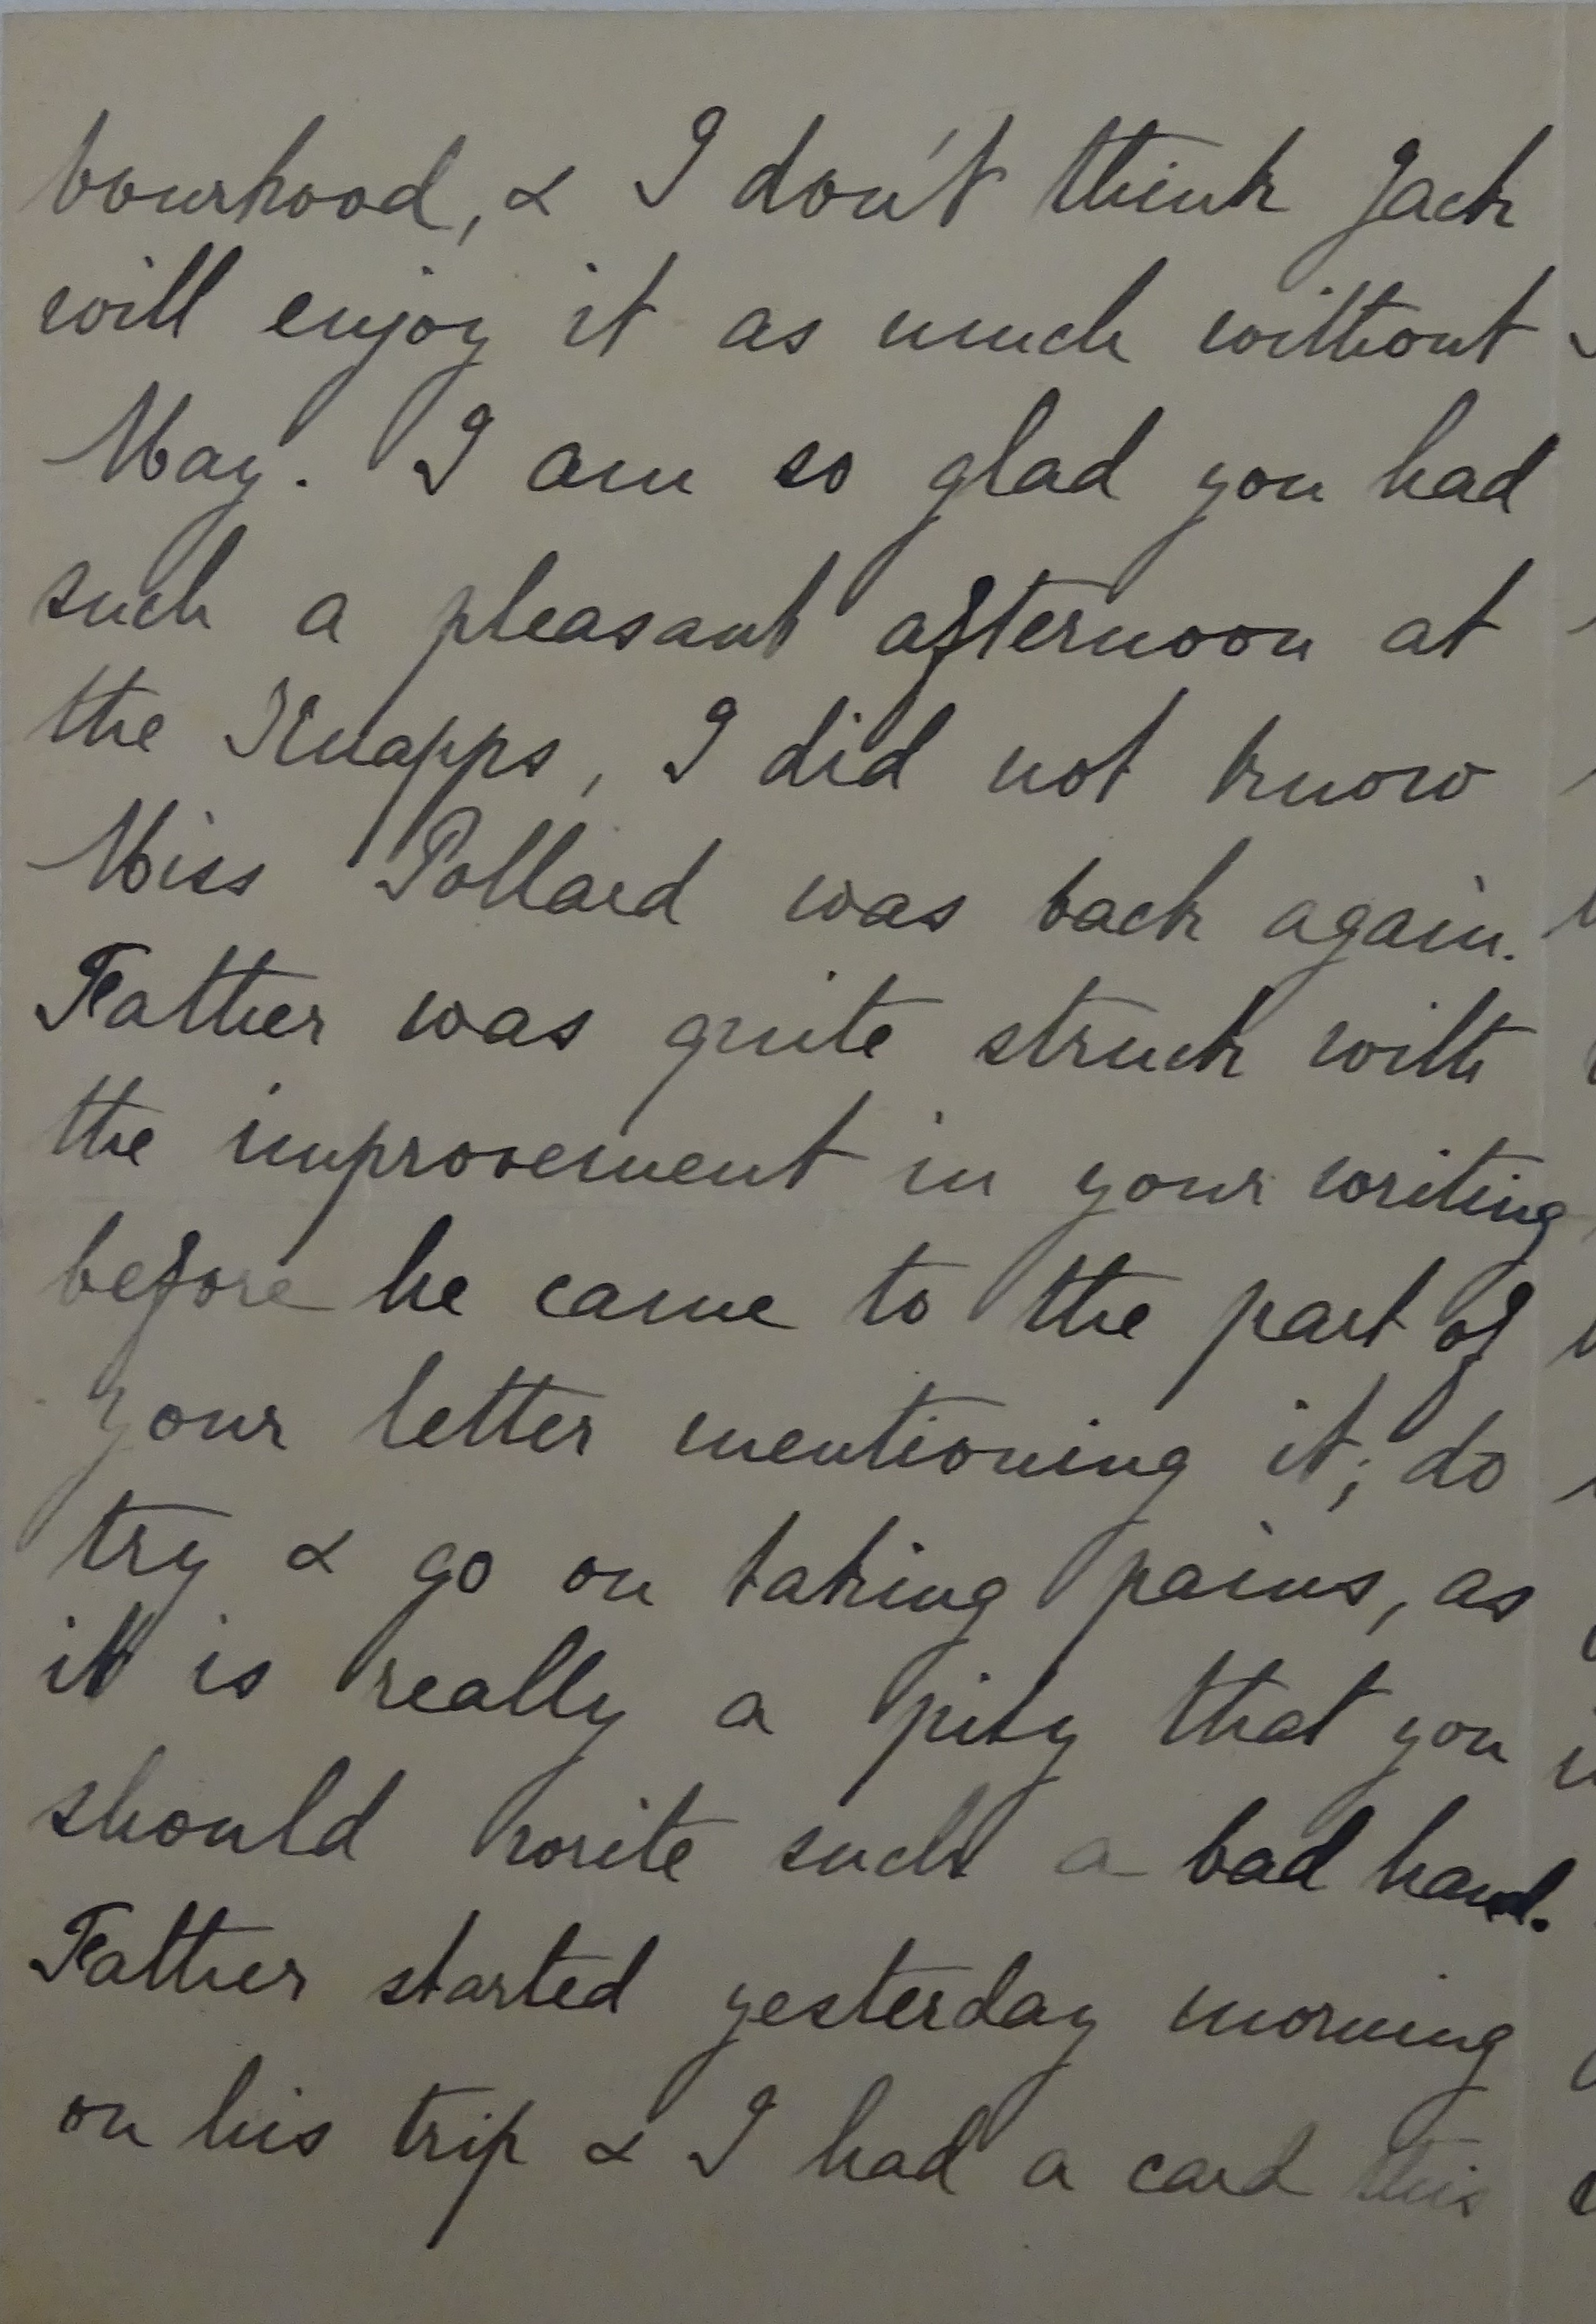 bourhood, & I don't think Jack
will enjoy it as much without
May. I am so glad you had
such a pleasant afternoon at
the Knapps, I did not know
Miss Pollard was back again.
Father was quite struck with
the improvement in your writing
before he came to the part of
your letter mentioning it; do
try & go on taking pains, as
it is really a pity that you
should write such a bad hand.
Father started yesterday morning
on his trip & I had a card this